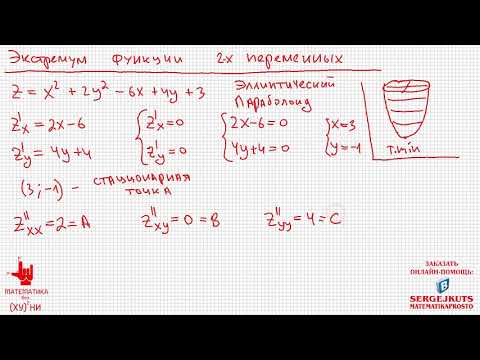 Экстремум функции 2х переменных
Z = x² + 2y² - 6x + 4y + 3
Эллиптический
Параболоид
Z'x = 2x - 6
Z'y = 4y + 4
{ Z'x = 0
Z'y = 0
{ 2x - 6 = 0
4y + 4 = 0
{ x = 3
y = -1
т. min
(3; -1) - стационарная
точка
Z''xx = 2 = A
Z''xy = 0 = B
Z''yy = 4 = C
МАТЕМАТИКА
без
(ХУ)²НИ
ЗАКАЗАТЬ
ОНЛАЙН-ПОМОЩЬ:
B
SERGEJKUTS
MATEMATIKAPROSTO